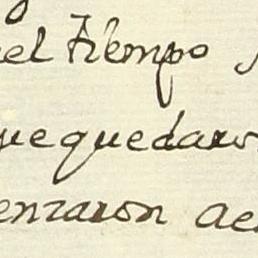 el tiempo
que quedaro
enzaron ae